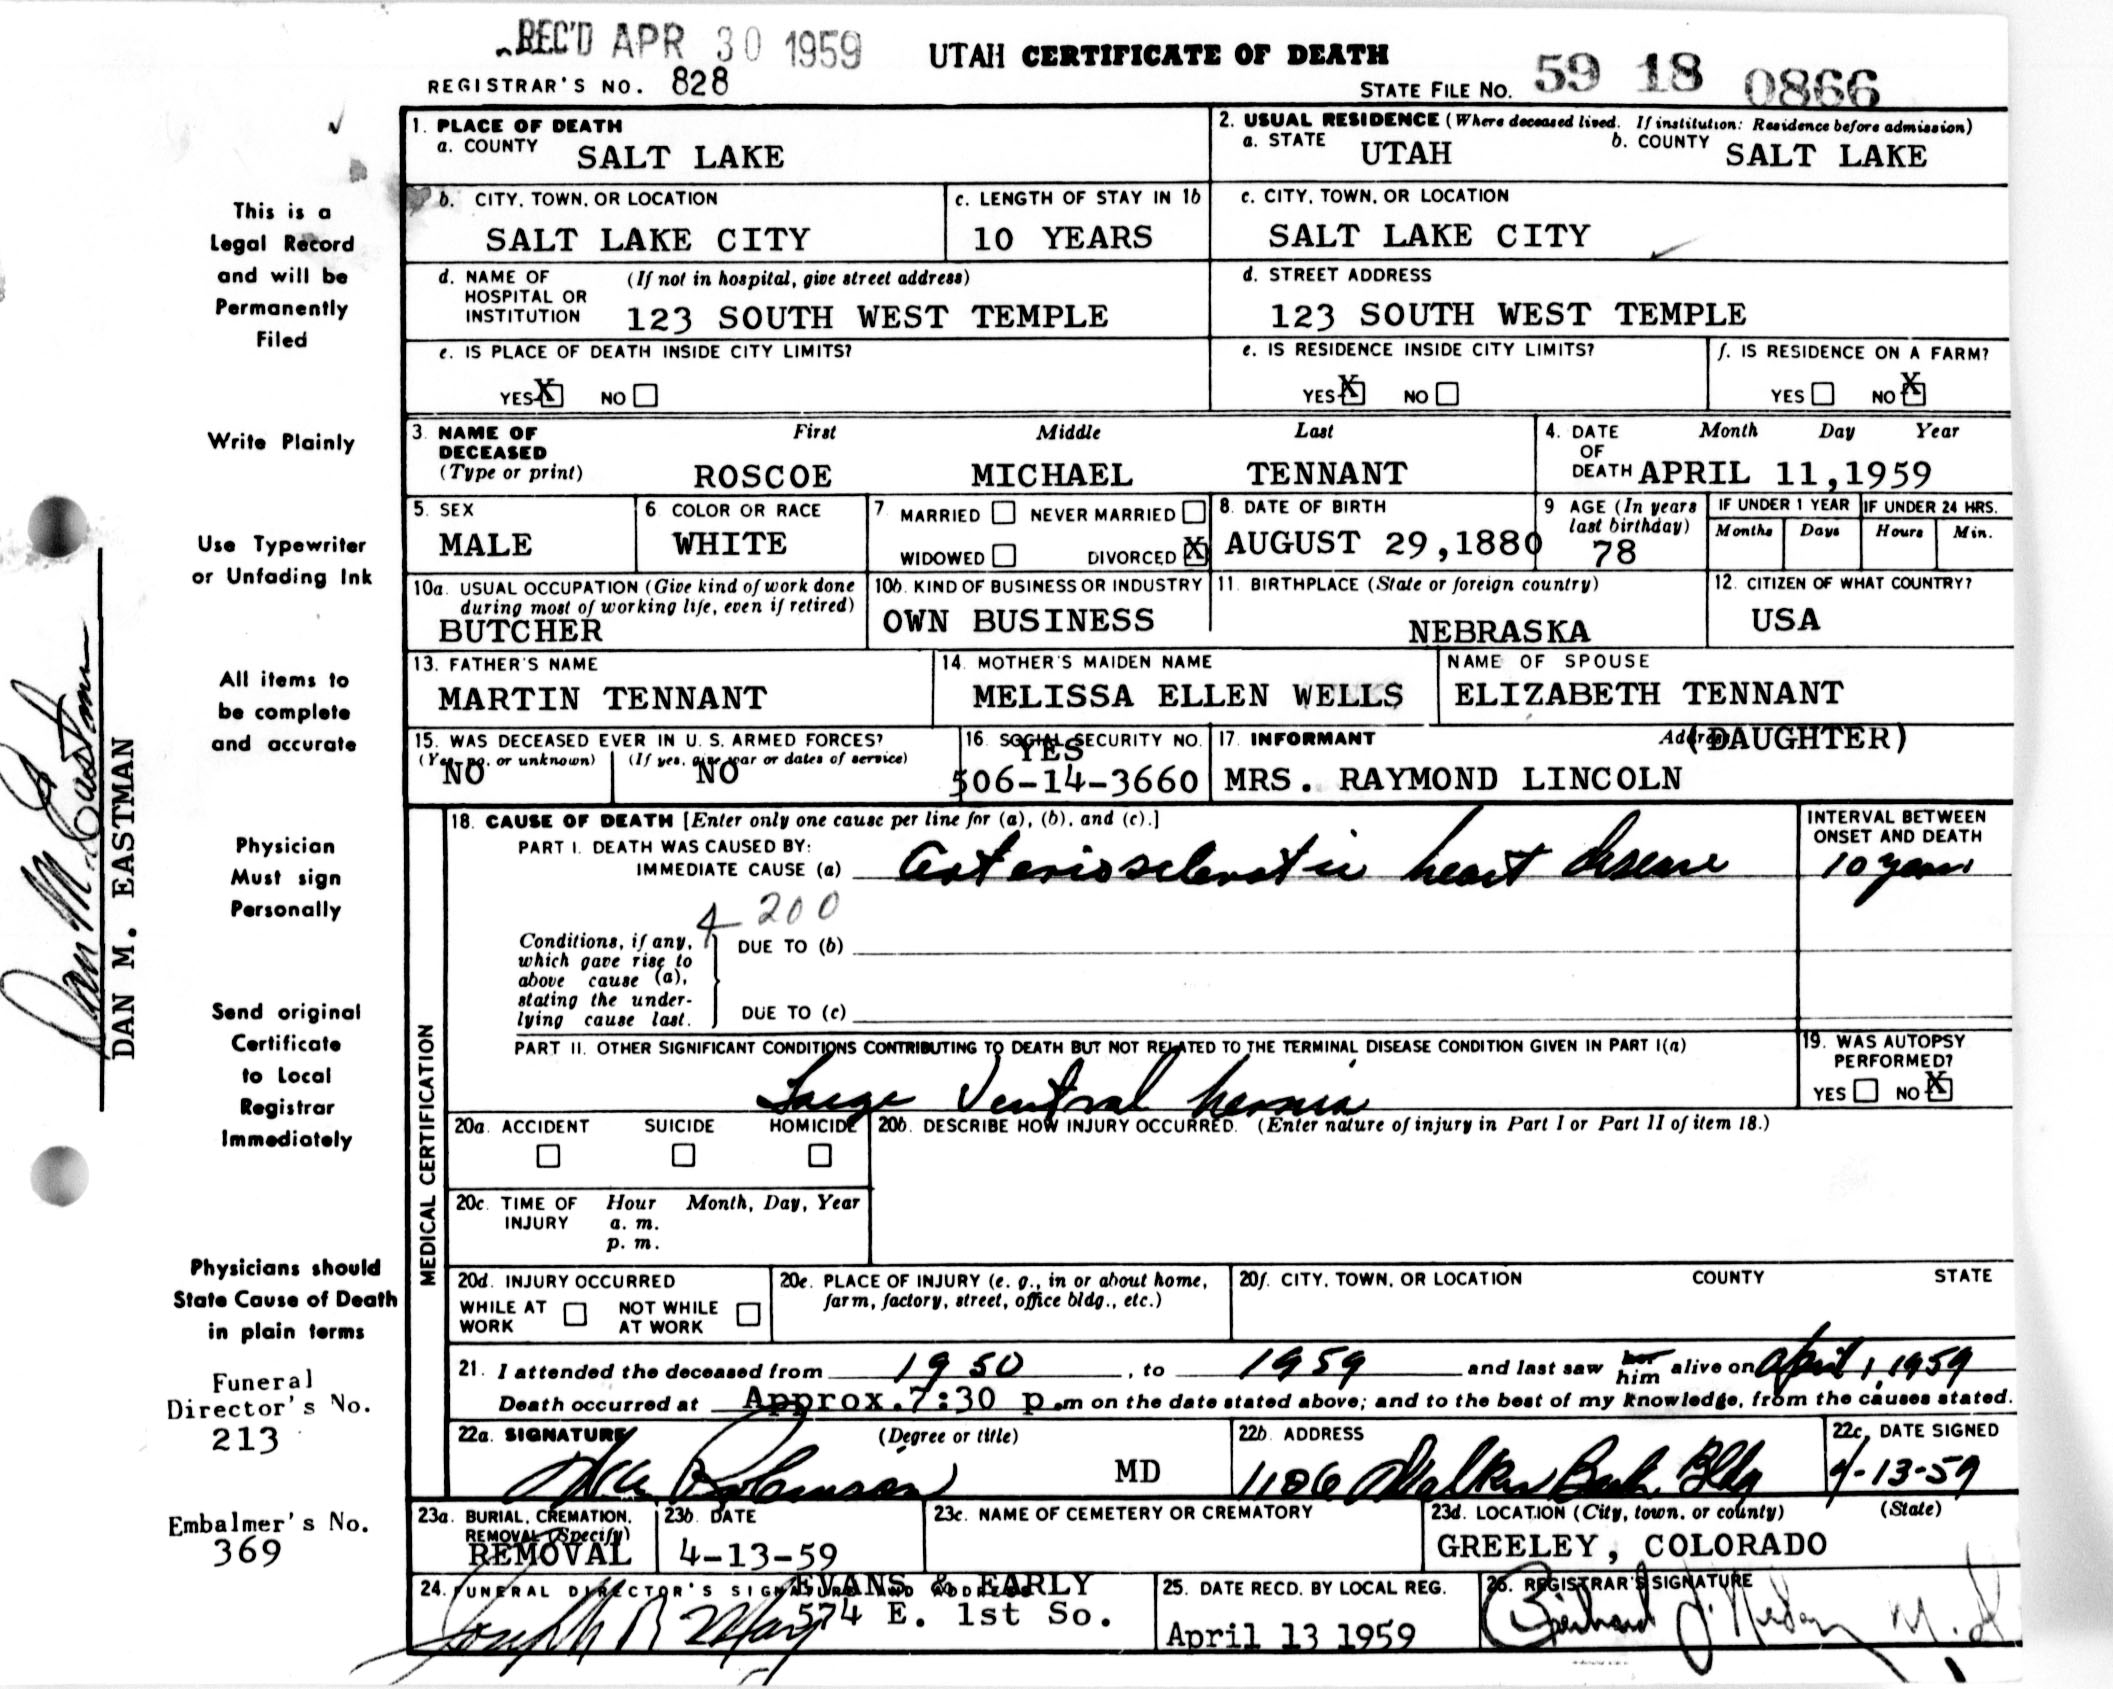 REC'D APR 30 1959
UTAH CERTIFICATE OF DEATH
REGISTRAR'S NO. 828
STATE FILE NO. 59 18 0866
This is a
Legal Record
and will be
Permanently
Filed
Write Plainly
Use Typewriter
or Unfading Ink
All items to
be complete
and accurate
Physician
Must sign
Personally
Send original
Certificate
to Local
Registrar
Immediately
Physicians should
State Cause of Death
in plain terms
Funeral
Director's No.
213
Embalmer's No.
369
Dan M. Eastman
DAN M. EASTMAN
1. PLACE OF DEATH
a. COUNTY SALT LAKE
2. USUAL RESIDENCE (Where deceased lived. If institution: Residence before admission)
a. STATE UTAH b. COUNTY SALT LAKE
b. CITY, TOWN, OR LOCATION
SALT LAKE CITY
c. LENGTH OF STAY IN 1b
10 YEARS
c. CITY, TOWN, OR LOCATION
SALT LAKE CITY
d. NAME OF (If not in hospital, give street address)
HOSPITAL OR
INSTITUTION 123 SOUTH WEST TEMPLE
d. STREET ADDRESS
123 SOUTH WEST TEMPLE
e. IS PLACE OF DEATH INSIDE CITY LIMITS?
YES X NO
e. IS RESIDENCE INSIDE CITY LIMITS?
YES X NO
f. IS RESIDENCE ON A FARM?
YES NO X
3. NAME OF First Middle Last
DECEASED
(Type or print) ROSCOE MICHAEL TENNANT
4. DATE Month Day Year
OF
DEATH APRIL 11,1959
5. SEX
MALE
6. COLOR OR RACE
WHITE
7. MARRIED NEVER MARRIED
WIDOWED DIVORCED X
8. DATE OF BIRTH
AUGUST 29,1880
9 AGE (In years
last birthday)
78
IF UNDER 1 YEAR
Months Days
IF UNDER 24 HRS.
Hours Min.
10a. USUAL OCCUPATION (Give kind of work done
during most of working life, even if retired)
BUTCHER
10b. KIND OF BUSINESS OR INDUSTRY
OWN BUSINESS
11. BIRTHPLACE (State or foreign country)
NEBRASKA
12. CITIZEN OF WHAT COUNTRY?
USA
13. FATHER'S NAME
MARTIN TENNANT
14. MOTHER'S MAIDEN NAME
MELISSA ELLEN WELLS
NAME OF SPOUSE
ELIZABETH TENNANT
15. WAS DECEASED EVER IN U. S. ARMED FORCES?
(Yes, no, or unknown) (If yes, give war or dates of service)
NO NO
16. SOCIAL SECURITY NO.
YES
506-14-3660
17. INFORMANT Address (DAUGHTER)
MRS. RAYMOND LINCOLN
MEDICAL CERTIFICATION
18. CAUSE OF DEATH [Enter only one cause per line for (a), (b), and (c).]
PART I. DEATH WAS CAUSED BY:
IMMEDIATE CAUSE (a) Arteriosclerotic heart disease
INTERVAL BETWEEN
ONSET AND DEATH
10 years
4200
Conditions, if any,
which gave rise to
above cause (a),
stating the under-
lying cause last.
DUE TO (b)
DUE TO (c)
PART II. OTHER SIGNIFICANT CONDITIONS CONTRIBUTING TO DEATH BUT NOT RELATED TO THE TERMINAL DISEASE CONDITION GIVEN IN PART I(a)
Large Ventral hernia
19. WAS AUTOPSY
PERFORMED?
YES NO X
20a. ACCIDENT SUICIDE HOMICIDE
20b. DESCRIBE HOW INJURY OCCURRED. (Enter nature of injury in Part I or Part II of item 18.)
20c. TIME OF Hour Month, Day, Year
INJURY a. m.
p. m.
20d. INJURY OCCURRED
WHILE AT NOT WHILE
WORK AT WORK
20e. PLACE OF INJURY (e. g., in or about home,
farm, factory, street, office bldg., etc.)
20f. CITY, TOWN, OR LOCATION COUNTY STATE
21. I attended the deceased from 1950, to 1959 and last saw her him alive on April 1, 1959
Death occurred at Approx.7:30 p.m on the date stated above; and to the best of my knowledge, from the causes stated.
22a. SIGNATURE (Degree or title)
Robinson MD
22b. ADDRESS
1106 Walker Bank Bldg
22c. DATE SIGNED
4-13-59
23a. BURIAL, CREMATION,
REMOVAL (Specify)
REMOVAL
23b. DATE
4-13-59
23c. NAME OF CEMETERY OR CREMATORY
23d. LOCATION (City, town, or county) (State)
GREELEY, COLORADO
24. FUNERAL DIRECTOR'S SIGNATURE AND ADDRESS
EVANS & EARLY
574 E. 1st So.
25. DATE RECD. BY LOCAL REG.
April 13 1959
26. REGISTRAR'S SIGNATURE